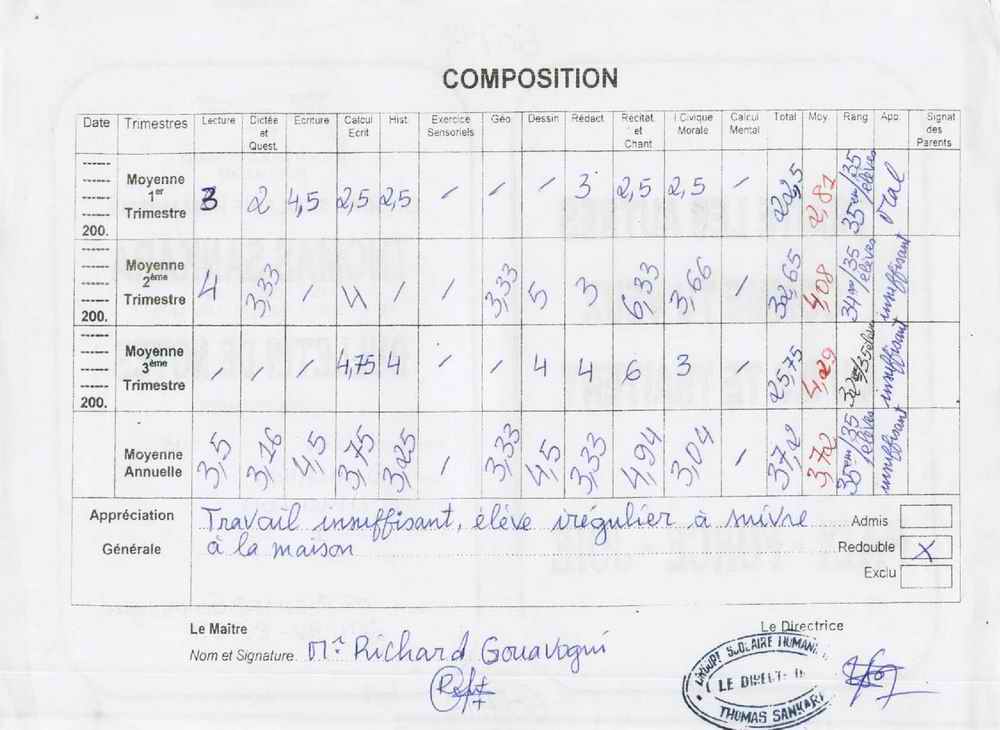 COMPOSITION
Date Trimestres Lecture Dictée et Quest. Ecriture Calcul Ecrit Hist. Exercice Sensoriels Géo Dessin Rédact Récitat. et Chant I.Civique Morale Calcul Mental Total Moy. Rang App. Signat des Parents
200. Moyenne 1er Trimestre 3 2 4,5 2,5 2,5 / / / 3 2,5 2,5 / 22,5 2,81 35em/35 élèves Mal
200. Moyenne 2ème Trimestre 4 3,33 / 4 / / 3,33 5 3 6,33 3,66 / 32,65 4,08 34em/35 élèves insuffisant
200. Moyenne 3ème Trimestre / / / 4,75 4 / / 4 4 6 3 / 25,75 4,29 insuffisant
Moyenne Annuelle 3,5 3,16 4,5 3,75 3,25 / 3,33 4,5 3,33 4,94 3,04 / 37,2 3,72 35em/35 élèves insuffisant
Appréciation Générale
Travail insuffisant, élève irrégulier à suivre
à la maison
Admis
Redouble X
Exclu
Le Maître
Nom et Signature. Mr Richard Gouavogui
Le Directrice
GROUPE SCOLAIRE
LE DIRECT
THOMAS SANKARA